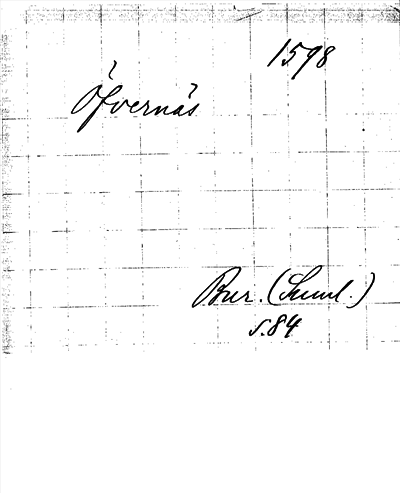 1598
Öfvernäs
Bur. (Suml.)
s. 84